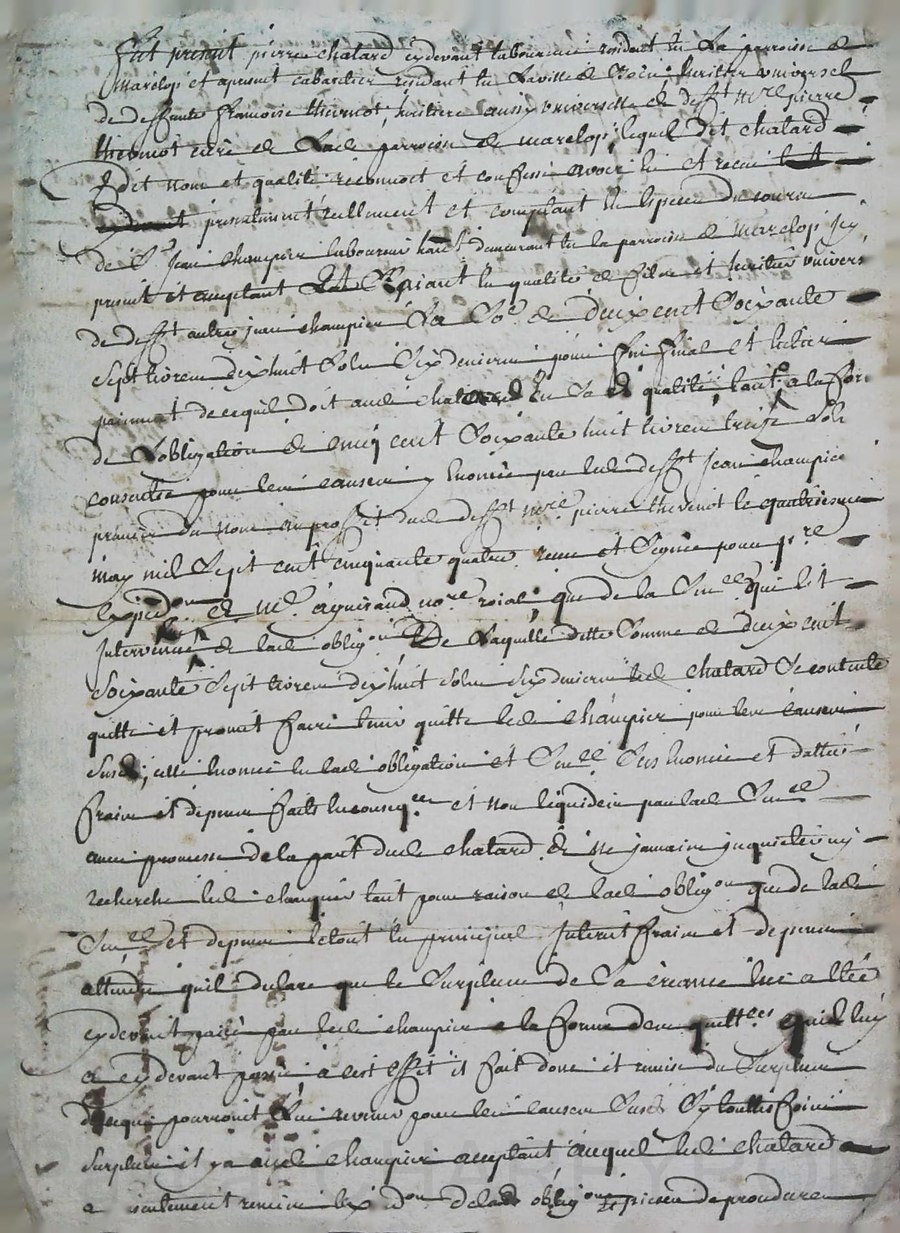 fut présent pierre chatard cydevant laboureur résidant en la parroisse de
Marclop et apresent cabaretier résidant en la ville de heritier universel
de deffunte francoise thevenot, heritiere aussy universelle de defft mre pierre
thevenot curé de lad parroisse de marclop, lequel dit chatard
Adit nom et qualité reconnoit et confesse avoir eu et receu
presentement réellement et comptant en espece de cours
de Sr jean champier laboureur habt demeurant en la parroisse de marclop icy
present et acceptant Et paiant en qualité de fils et heritier univers
de defft autre jean champier La Some de deux cent Soixante
Sept livres dix huit Sols Six deniers pour fin final et entier
paiement de cequil doit aud chatard En Sa d qualité, tant a la for
de Lobligation de cinq cent Soixante huit livres treize Sols
consentie pour les causes y enoncée par led defft jean champier
premier du nom au proffit dud defft mre pierre thevenot le quatriesme
may mil Sept cent cinquante quatre receue et Signée pour pre
expedon de Me aguiraud nore roial, que de la Sentce qui est
intervenue de lad obligon De Laquelle ditte Somme de deux cent
Soixante Sept livres dix huit Sols Six deniers led chatard Se contente
quitte et promet faire tenir quitte led champier pour les causes
Susd, celle enoncée en lad obligation et Sentce Sus enoncée et dattée
frais et depens faits en conseqce et non liquidés par lad Sentce
avec promesse de la part dud chatard de ne jamais inquieter ny
rechercher led champier tant pour raison de lad obligon que de lad
Sentce et depens le tout en principal interest frais et depens
attendu quil declare que le Surplus de Sa creance luy a été
cydevant paié par led champier a la forme des quittces quil luy
a cydevant passé a cest effet il fait done et remise du Surplus
de ce qui pourroit lui revenir pour les causes Susd Sy toutes fois
Surplus il y a aud champier acceptant auquel led chatard
a reelement remis lexpdon de lad obligon pieces de procedures